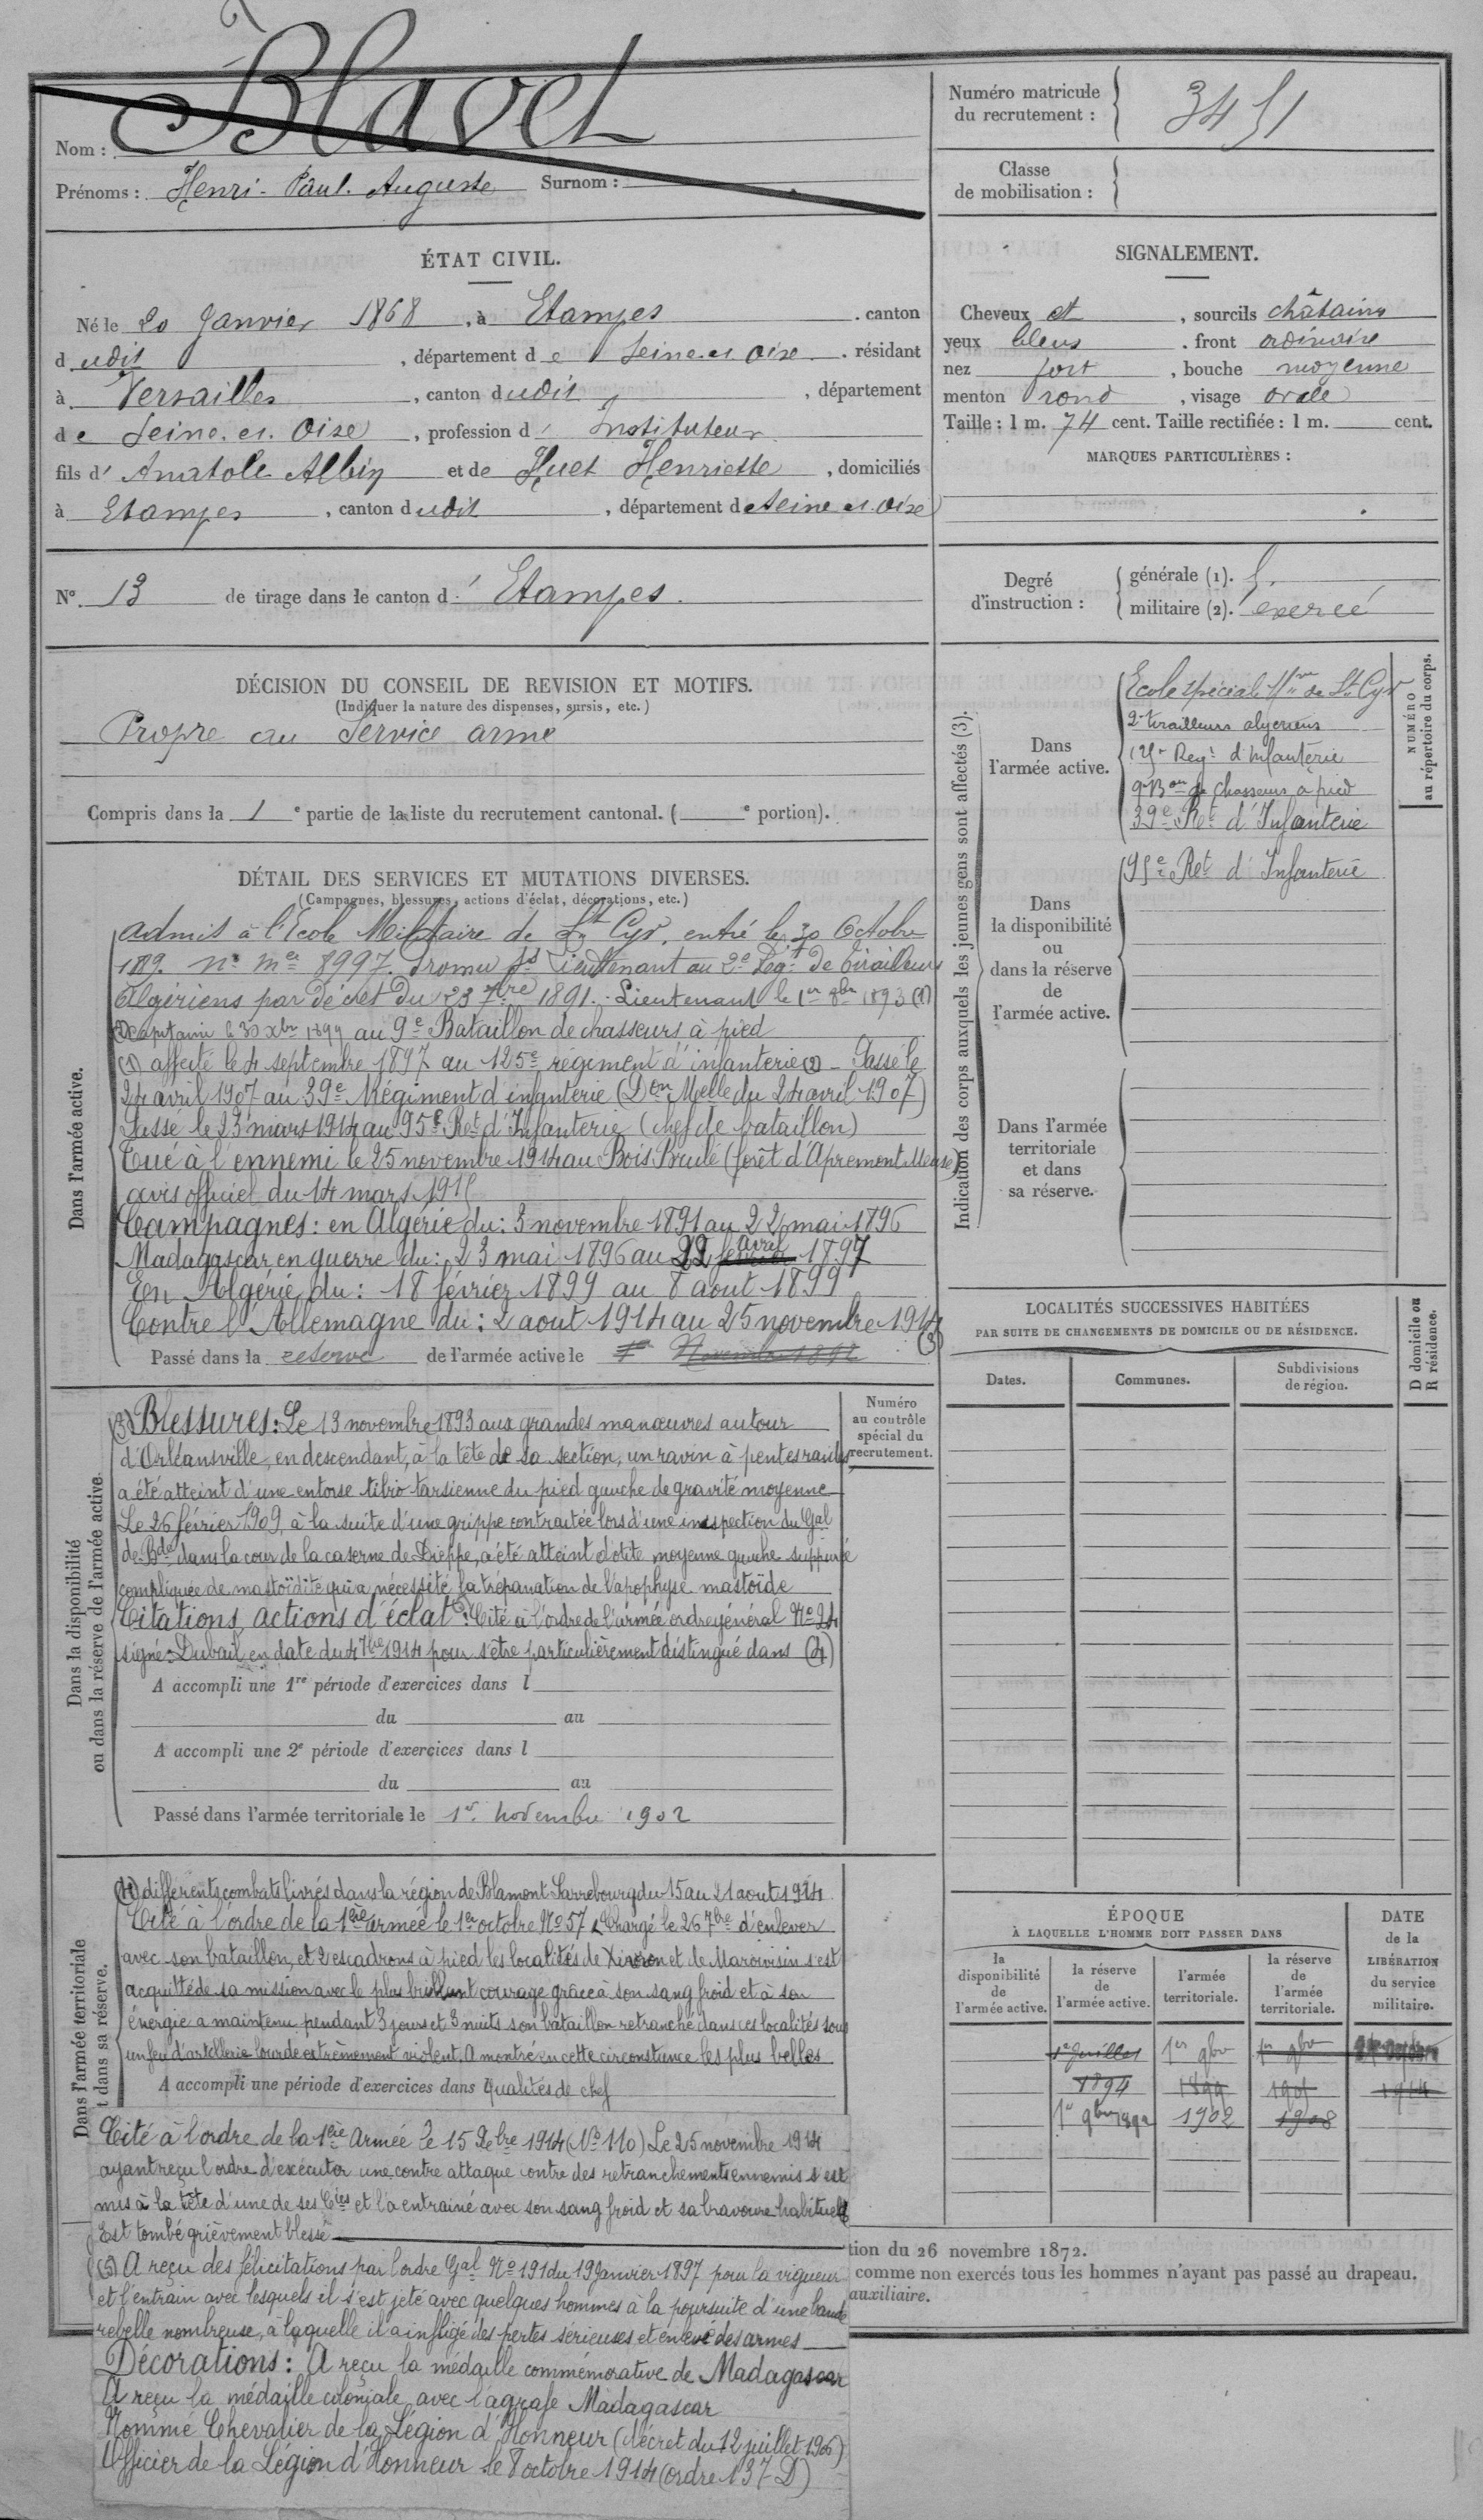 Nom : Blavet
Prénoms : Henri-Paul-Auguste Surnom :
Numéro matricule
du recrutement : 3451
Classe
de mobilisation :
ÉTAT CIVIL.
Né le 20 Janvier 1868, à Etampes . canton
dudit, département de Seine et Oise . résidant
à Versailles, canton dudit, département
de Seine et Oise, profession d'Instituteur
fils d'Anatole Albin et de Huet Henriette, domiciliés
à Etampes, canton dudit, département de Seine et Oise
SIGNALEMENT.
Cheveux et, sourcils châtains
yeux bleus . front ordinaire
nez fort, bouche moyenne
menton rond, visage ovale
Taille : 1 m. 74 cent. Taille rectifiée : 1 m. cent.
MARQUES PARTICULIÈRES :
N° 13 de tirage dans le canton d'Etampes.
Degré
d'instruction :
générale (1). 5.
militaire (2). exercé
DÉCISION DU CONSEIL DE REVISION ET MOTIFS.
(Indiquer la nature des dispenses, sursis, etc.)
Propre au Service armé
Compris dans la 1e partie de la liste du recrutement cantonal. ( e portion).
DÉTAIL DES SERVICES ET MUTATIONS DIVERSES.
(Campagnes, blessures, actions d'éclat, décorations, etc.)
Dans l'armée active.
Admis à l'Ecole Militaire de St Cyr, entré le 30 Octobre
1889. n° mle 8997. Promu ss Lieutenant au 2e Regt de tirailleurs
Algériens par décret du 23 7bre 1891. Lieutenant le 1er 8bre 1893 (1)
(2) Capitaine le 30 Xbre 1899 au 9e Bataillon de chasseurs à pied
(1) affecté le 4 septembre 1897 au 125e régiment d'infanterie (2) - Passé le
24 avril 1907 au 39e Régiment d'infanterie (Don Melle du 24 avril 1907)
Passé le 23 mars 1914 au 95e Rt d'Infanterie (chef de bataillon)
Tué à l'ennemi le 25 novembre 1914 au Bois Brulé (forêt d'Apremont Meuse)
avis officiel du 14 mars 1915
Campagnes : en Algérie du : 3 novembre 1891 au 22 mai 1896
Madagascar en guerre du : 23 mai 1896 au 22 avril 1897
En Algérie du : 18 février 1899 au 8 aout 1899
Contre l'Allemagne du : 2 aout 1914 au 25 novembre 1914
(3)
Passé dans la réserve de l'armée active le 1er Novembre 1892
Indication des corps auxquels les jeunes gens sont affectés (3).
NUMÉRO
au répertoire du corps.
Dans
l'armée active.
Ecole spéciale Mre de St Cyr
2e tirailleurs algériens
125e Regt d'Infanterie
9e Bon de chasseurs à pied
39e Rt d'Infanterie
Dans
la disponibilité
ou
dans la réserve
de
l'armée active.
95e Rt d'Infanterie
Dans l'armée
territoriale
et dans
sa réserve.
Dans la disponibilité
ou dans la réserve de l'armée active.
(3) Blessures : Le 13 novembre 1893 aux grandes manœuvres autour
d'Orléansville, en descendant, à la tête de sa section, un ravin à pentes raides,
a été atteint d'une entorse tibio tarsienne du pied gauche de gravité moyenne
Le 26 février 1909, à la suite d'une grippe contractée lors d'une inspection du Gal
de Bde dans la cour de la caserne de Dieppe, a été atteint d'otite moyenne gauche suppurée
compliquée de mastoïdite qui a nécessité la trépanation de l'apophyse mastoïde
Citations, actions d'éclat : Cité à l'ordre de l'armée ordre général No 24
signé : Dubail en date du 4 7bre 1914 pour s'être particulièrement distingué dans (4)
A accompli une 1re période d'exercices dans l
du au
A accompli une 2e période d'exercices dans l
du au
Passé dans l'armée territoriale le 1er novembre 1902
Numéro
au contrôle
spécial du
recrutement.
LOCALITÉS SUCCESSIVES HABITÉES
PAR SUITE DE CHANGEMENTS DE DOMICILE OU DE RÉSIDENCE.
Dates. Communes. Subdivisions
de région.
D domicile ou
R résidence.
Dans l'armée territoriale
t dans sa réserve.
(4) différents combats livrés dans la région de Blamont Sarrebourg du 15 au 21 aout 1914
Cité à l'ordre de la 1ère armée le 1er octobre No 57 "Chargé le 26 7bre d'enlever
avec son bataillon, et 2 escadrons à pied les localités de Xivray et de Marvoisin s'est
acquitté de sa mission avec le plus brillant courage grâce à son sang froid et à son
énergie a maintenu pendant 3 jours et 3 nuits son bataillon retranché dans ces localités sous
un feu d'artillerie lourde extrêmement violent. A montré en cette circonstance les plus belles
A accompli une période d'exercices dans l qualités de chef
Cité à l'ordre de la 1ère Armée le 15 Xbre 1914 (No 110) Le 25 novembre 1914
ayant reçu l'ordre d'exécuter une contre attaque contre des retranchements ennemis s'est
mis à la tête d'une de ses Cies et l'a entrainé avec son sang froid et sa bravoure habituels
Est tombé grièvement blessé
(5) A reçu des félicitations par l'ordre Gal No 191 du 19 Janvier 1897 pour la vigueur
et l'entrain avec lesquels il s'est jeté avec quelques hommes à la poursuite d'une bande
rebelle nombreuse, à laquelle il a infligé des pertes sérieuses et enlevé des armes
Décorations : A reçu la médaille commémorative de Madagascar
A reçu la médaille coloniale avec l'agrafe Madagascar
Nommé Chevalier de la Légion d'Honneur (décret du 12 juillet 1906)
Officier de la Légion d'Honneur le 8 octobre 1914 (ordre 137 D)
ÉPOQUE
À LAQUELLE L'HOMME DOIT PASSER DANS
la
disponibilité
de
l'armée active.
la réserve
de
l'armée active.
l'armée
territoriale.
la réserve
de
l'armée
territoriale.
DATE
de la
LIBÉRATION
du service
militaire.
1er Juillet 1er 9bre 1er 9bre
1894 1899 1905 1914
1er 9bre 1892 1902 1908
tion du 26 novembre 1872.
comme non exercés tous les hommes n'ayant pas passé au drapeau.
auxiliaire.